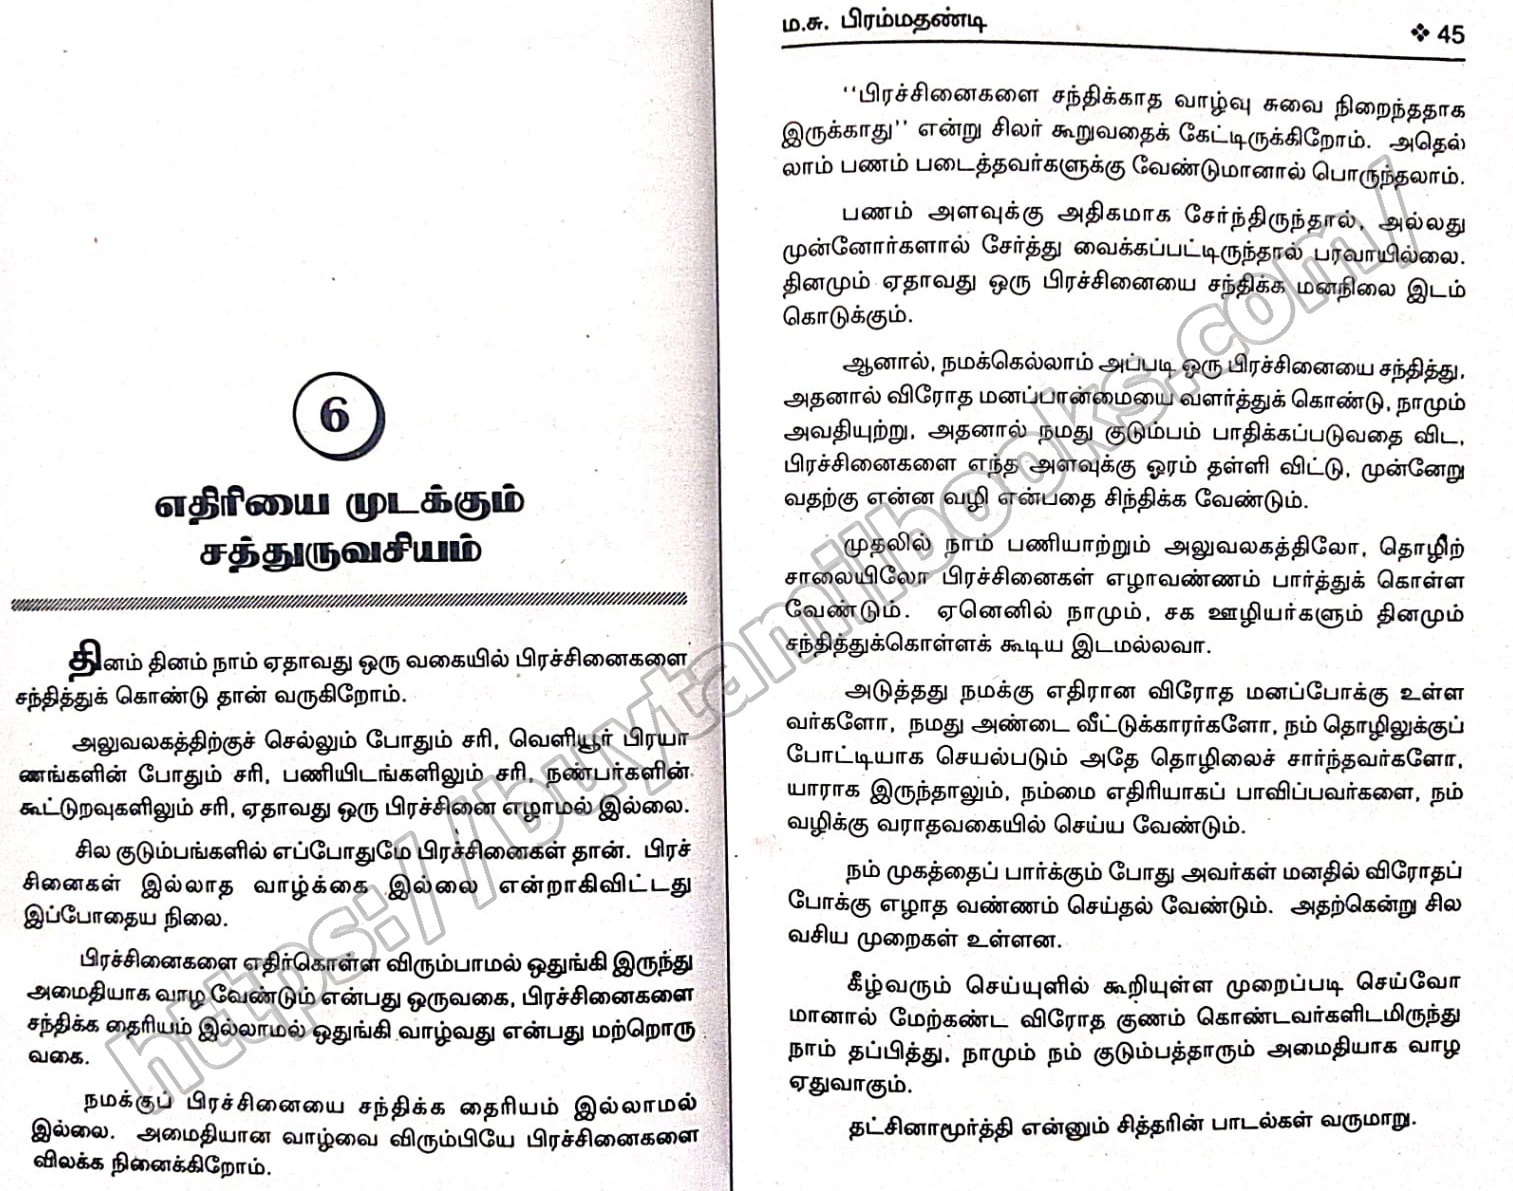 6
எதிரியை முடக்கும்
சத்துருவசியம்
தினம் தினம் நாம் ஏதாவது ஒரு வகையில் பிரச்சினைகளை
சந்தித்துக் கொண்டு தான் வருகிறோம்.
அலுவலகத்திற்குச் செல்லும் போதும் சரி, வெளியூர் பிரயா
ணங்களின் போதும் சரி, பணியிடங்களிலும் சரி, நண்பர்களின்
கூட்டுறவுகளிலும் சரி, ஏதாவது ஒரு பிரச்சினை எழாமல் இல்லை.
சில குடும்பங்களில் எப்போதுமே பிரச்சினைகள் தான். பிரச்
சினைகள் இல்லாத வாழ்க்கை இல்லை என்றாகிவிட்டது
இப்போதைய நிலை.
பிரச்சினைகளை எதிர்கொள்ள விரும்பாமல் ஒதுங்கி இருந்து
அமைதியாக வாழ வேண்டும் என்பது ஒருவகை, பிரச்சினைகளை
சந்திக்க தைரியம் இல்லாமல் ஒதுங்கி வாழ்வது என்பது மற்றொரு
வகை.
நமக்குப் பிரச்சினையை சந்திக்க தைரியம் இல்லாமல்
இல்லை. அமைதியான வாழ்வை விரும்பியே பிரச்சினைகளை
விலக்க நினைக்கிறோம்.
ம.சு. பிரம்மதண்டி ❖ 45
‘‘பிரச்சினைகளை சந்திக்காத வாழ்வு சுவை நிறைந்ததாக
இருக்காது’’ என்று சிலர் கூறுவதைக் கேட்டிருக்கிறோம். அதெல்
லாம் பணம் படைத்தவர்களுக்கு வேண்டுமானால் பொருந்தலாம்.
பணம் அளவுக்கு அதிகமாக சேர்ந்திருந்தால், அல்லது
முன்னோர்களால் சேர்த்து வைக்கப்பட்டிருந்தால் பரவாயில்லை.
தினமும் ஏதாவது ஒரு பிரச்சினையை சந்திக்க மனநிலை இடம்
கொடுக்கும்.
ஆனால், நமக்கெல்லாம் அப்படி ஒரு பிரச்சினையை சந்தித்து,
அதனால் விரோத மனப்பான்மையை வளர்த்துக் கொண்டு, நாமும்
அவதியுற்று, அதனால் நமது குடும்பம் பாதிக்கப்படுவதை விட,
பிரச்சினைகளை எந்த அளவுக்கு ஓரம் தள்ளி விட்டு, முன்னேறு
வதற்கு என்ன வழி என்பதை சிந்திக்க வேண்டும்.
முதலில் நாம் பணியாற்றும் அலுவலகத்திலோ, தொழிற்
சாலையிலோ பிரச்சினைகள் எழாவண்ணம் பார்த்துக் கொள்ள
வேண்டும். ஏனெனில் நாமும், சக ஊழியர்களும் தினமும்
சந்தித்துக்கொள்ளக் கூடிய இடமல்லவா.
அடுத்தது நமக்கு எதிரான விரோத மனப்போக்கு உள்ள
வர்களோ, நமது அண்டை வீட்டுக்காரர்களோ, நம் தொழிலுக்குப்
போட்டியாக செயல்படும் அதே தொழிலைச் சார்ந்தவர்களோ,
யாராக இருந்தாலும், நம்மை எதிரியாகப் பாவிப்பவர்களை, நம்
வழிக்கு வராதவகையில் செய்ய வேண்டும்.
நம் முகத்தைப் பார்க்கும் போது அவர்கள் மனதில் விரோதப்
போக்கு எழாத வண்ணம் செய்தல் வேண்டும். அதற்கென்று சில
வசிய முறைகள் உள்ளன.
கீழ்வரும் செய்யுளில் கூறியுள்ள முறைப்படி செய்வோ
மானால் மேற்கண்ட விரோத குணம் கொண்டவர்களிடமிருந்து
நாம் தப்பித்து, நாமும் நம் குடும்பத்தாரும் அமைதியாக வாழ
ஏதுவாகும்.
தட்சினாமூர்த்தி என்னும் சித்தரின் பாடல்கள் வருமாறு.
https://buytamilbooks.com/